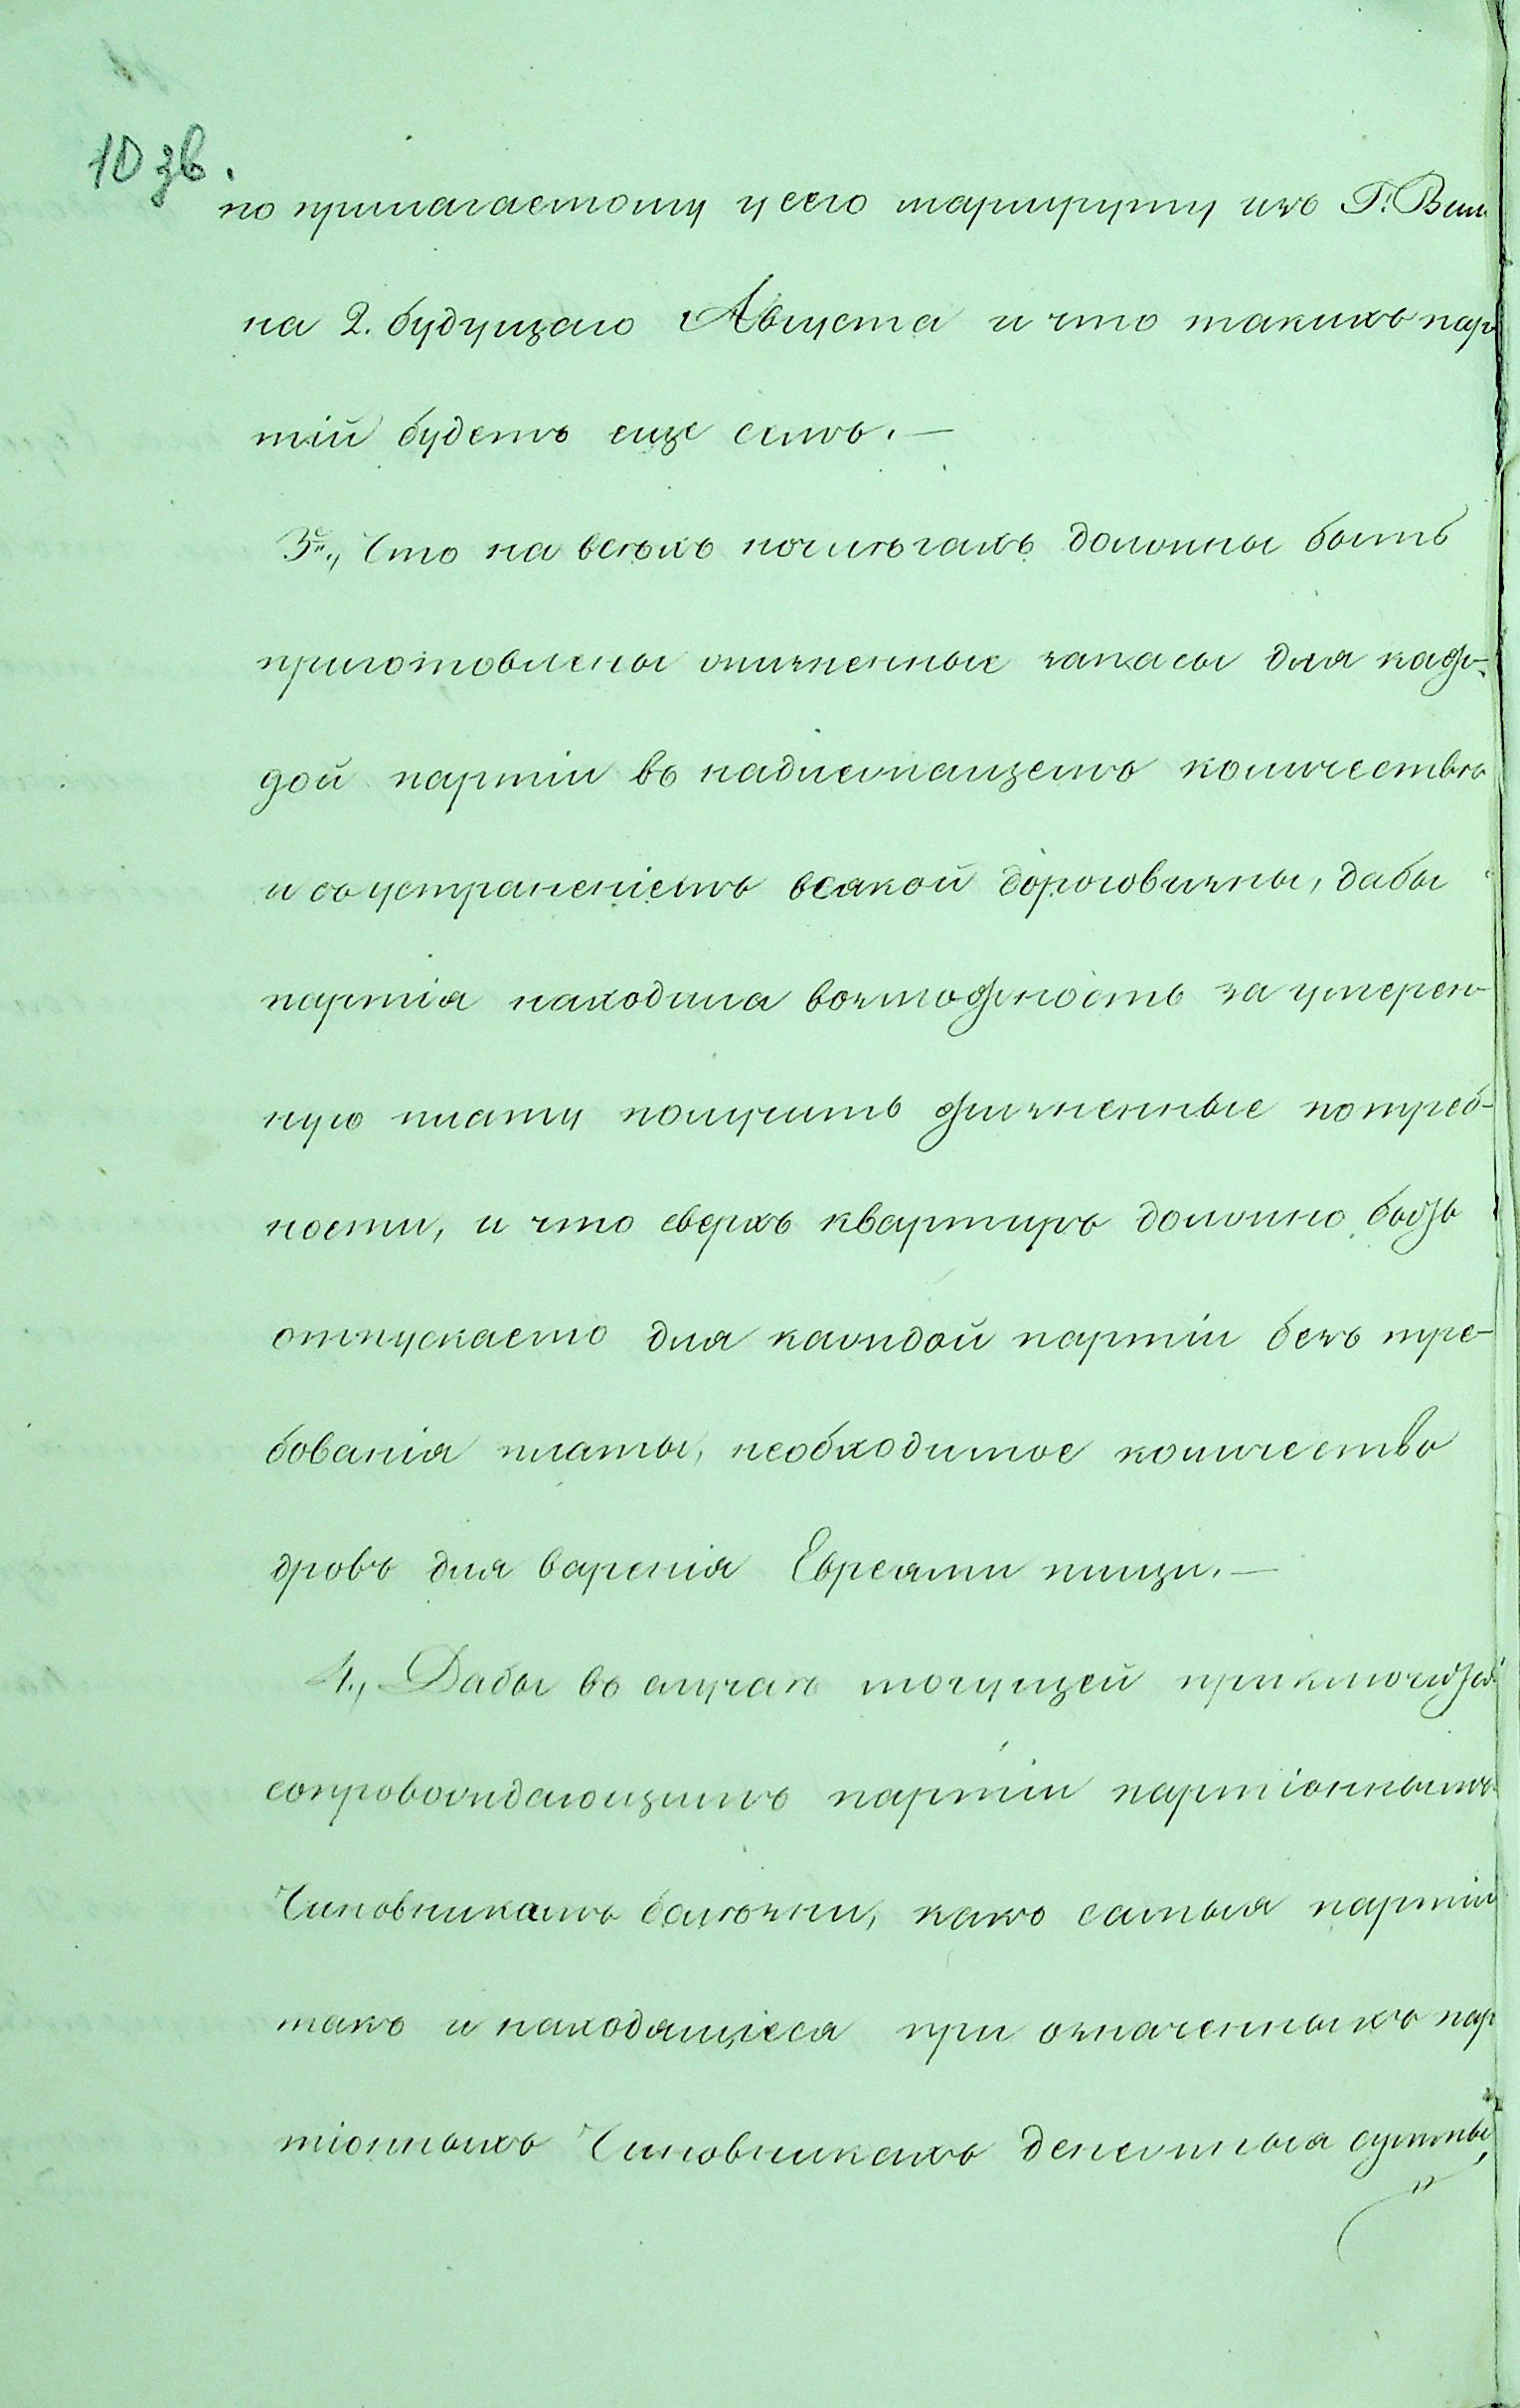 10 зв.
по прилагаемому у сего маршруту изъ Г. Виль
на 2. будущаго Августа и что такихъ пар
тій будетъ еще семь. —
3е., Что на всѣхъ ночлѣгахъ должны быть
приготовлены жизненные запасы для каж-
дой партіи въ надлежащемъ количествѣ
и съ устраненіемъ всякой дороговизны, дабы
партія находила возможность за умерен-
ную плату получить жизненные потреб-
ности, и что сверхъ квартиръ должно быть
отпускаемо для каждой партіи безъ тре-
бованія платы, необходимое количество
дровъ для варенія Евреями пищи. —
4., Дабы въ случаѣ могущей приключиться
сопровождающимъ партіи партіоннымъ
Чиновникамъ болѣзни, какъ самыя партіи
такъ и находящіеся при означенныхъ пар
тіонныхъ Чиновникахъ денежныя суммы,